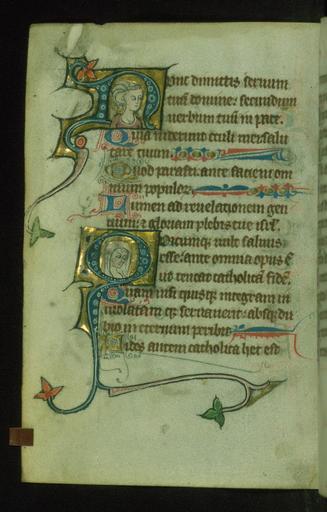 Nunc dimittis seruum
tuū domine: secundum
uerbum tuū in pace.
Quia uiderunt oculi mei salu
tare tuum
Quod parasti: ante faciem om
nium populor
Lumen ad reuelationem gen
tium: et gloriam plebis tue isrl.
Quicumque uult saluus
esse: ante omnia opus ē
ut teneat catholicā fidē.
Quam nisi quisque integram in
uiolatam que seruauerit: absque du
bio in eternum peribit
Fides autem catholica hec est